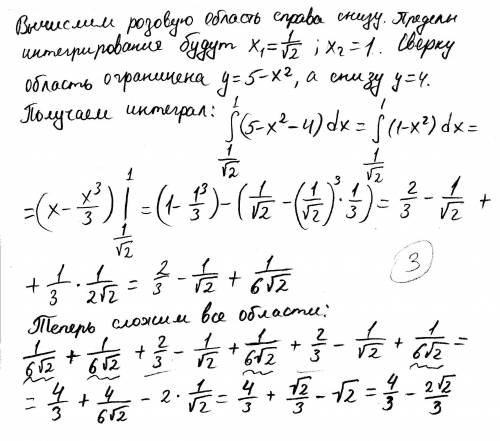 Вычислим розовую область справа снизу. Пределы
интегрирования будут x₁=1/√2 ; x₂=1. Сверху
область ограничена y=5-x², а снизу y=4.
Получаем интеграл: ∫_{1/√2}^{1} (5-x²-4)dx = ∫_{1/√2}^{1} (1-x²)dx =
=(x - x³/3) |_{1/√2}^{1} = (1 - 1³/3) - (1/√2 - (1/√2)³ · 1/3) = 2/3 - 1/√2 +
+ 1/3 · 1/2√2 = 2/3 - 1/√2 + 1/6√2
3
Теперь сложим все области:
1/6√2 + 1/6√2 + 2/3 - 1/√2 + 1/6√2 + 2/3 - 1/√2 + 1/6√2 =
= 4/3 + 4/6√2 - 2 · 1/√2 = 4/3 + √2/3 - √2 = 4/3 - 2√2/3